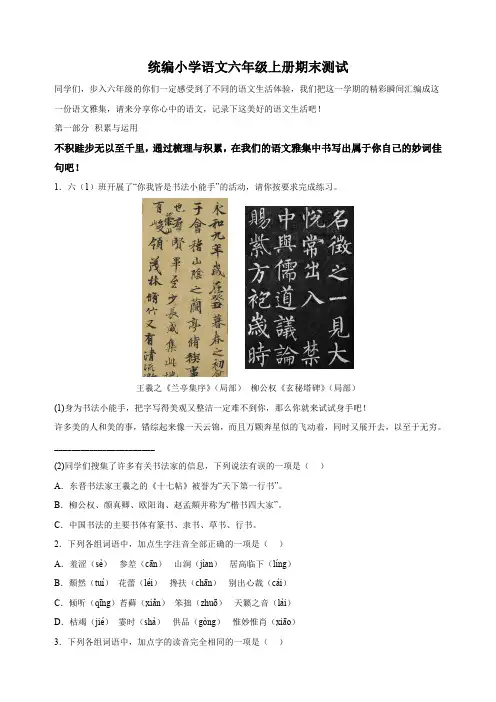 统编小学语文六年级上册期末测试
同学们，步入六年级的你们一定感受到了不同的语文生活体验，我们把这一学期的精彩瞬间汇编成这
一份语文雅集，请来分享你心中的语文，记录下这美好的语文生活吧！
第一部分 积累与运用
不积跬步无以至千里，通过梳理与积累，在我们的语文雅集中书写出属于你自己的妙词佳
句吧！
1．六（1）班开展了“你我皆是书法小能手”的活动，请你按要求完成练习。
永和九年歲在癸丑暮春之初
于會稽山陰之蘭亭脩稧事
也羣賢畢至少長咸集此地
有崇山峻領茂林脩竹又有清流
名徵之一見大
悅常出入 禁
中與儒道議論
賜紫方袍歲時
王羲之《兰亭集序》（局部） 柳公权《玄秘塔碑》（局部）
(1)身为书法小能手，把字写得美观又整洁一定难不到你，那么你就来试试身手吧！
许多美的人和美的事，错综起来像一天云锦，而且万颗奔星似的飞动着，同时又展开去，以至于无穷。
________________________
(2)同学们搜集了许多有关书法家的信息，下列说法有误的一项是（ ）
A．东晋书法家王羲之的《十七帖》被誉为“天下第一行书”。
B．柳公权、颜真卿、欧阳询、赵孟頫并称为“楷书四大家”。
C．中国书法的主要书体有篆书、隶书、草书、行书。
2．下列各组词语中，加点生字注音全部正确的一项是（ ）
A．羞涩（sè） 参差（cān） 山涧（jiàn） 居高临下（líng）
B．颓然（tuí） 花蕾（léi） 搀扶（chān） 别出心裁（cái）
C．倾听（qīng）苔藓（xiǎn） 笨拙（zhuō） 天籁之音（lài）
D．枯竭（jié） 霎时（shà） 供品（gòng） 惟妙惟肖（xiāo）
3．下列各组词语中，加点字的读音完全相同的一项是（ ）